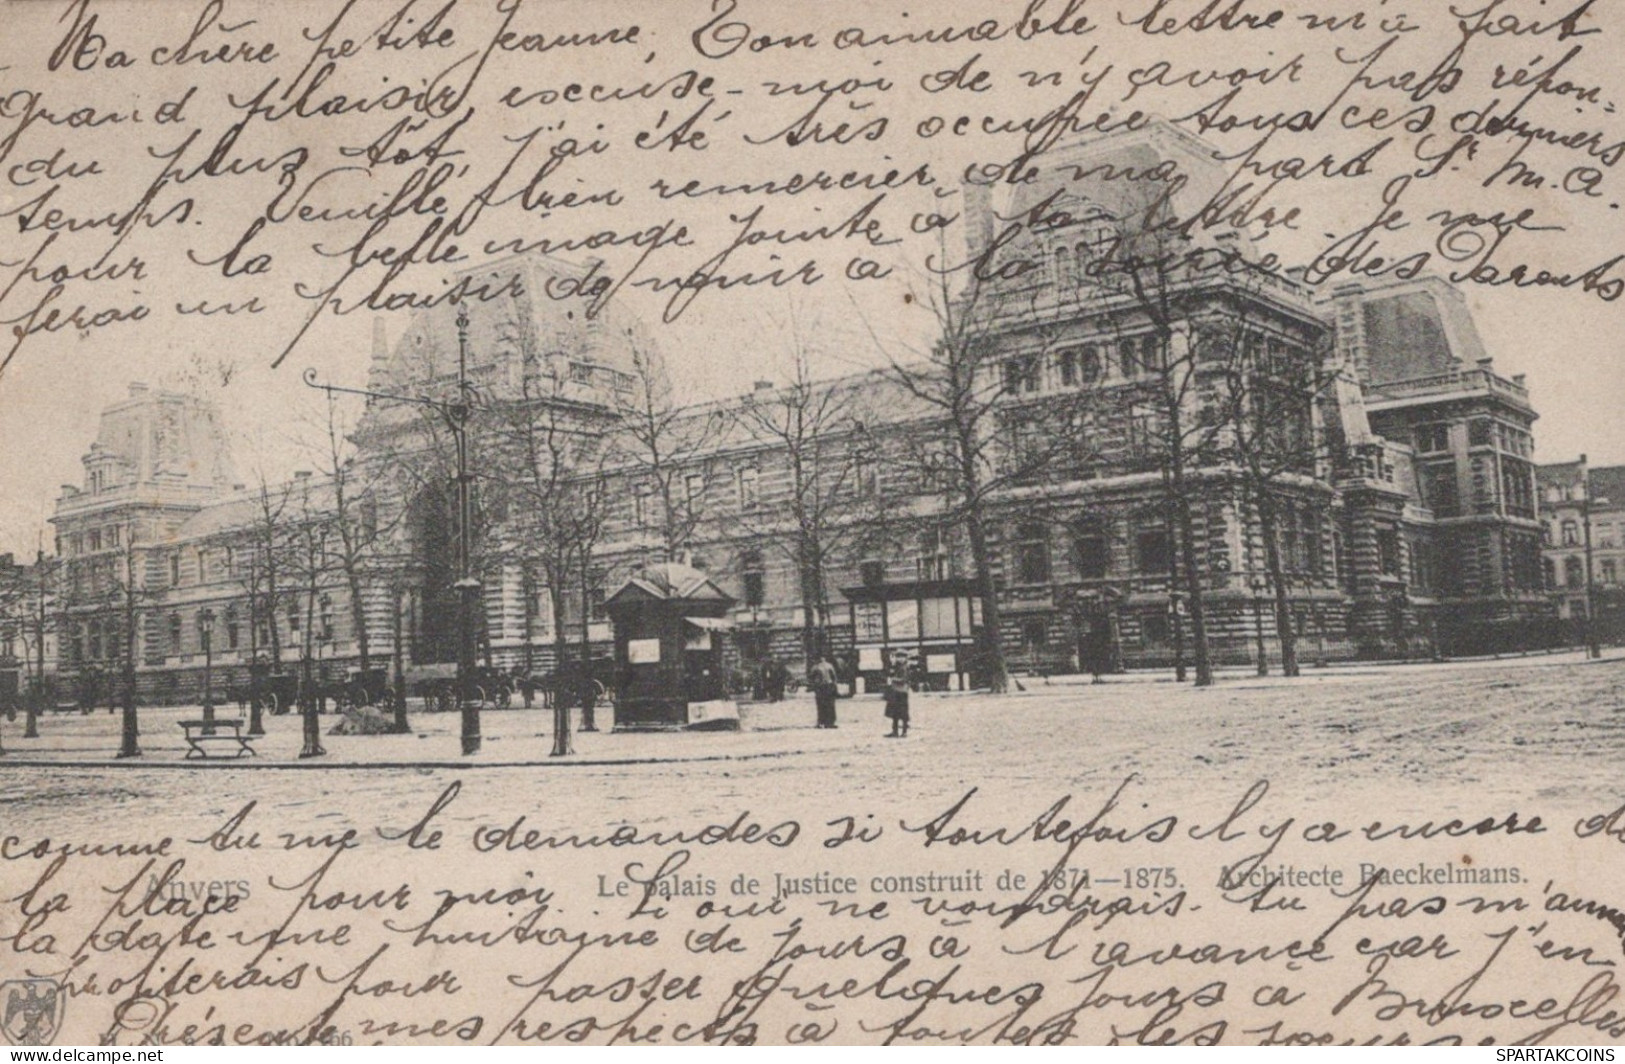 Ma chère petite Jeanne, Ton aimable lettre m'a fait
grand plaisir, exccuse-moi de n'y avoir pas répon=
du plus tôt, j'ai été très occupée tous ces derniers
temps. Veuille bien remercier de ma part Sr M. A.
pour la belle image jointe à ta lettre. Je me
ferai un plaisir de venir à la soirée des Parents
comme tu me le demandes si toutefois il y a encore de
Anvers Le Palais de Justice construit de 1871—1875. Architecte Baeckelmans.
la place pour moi. Si oui, ne voudrais-tu pas m'
la date une huitaine de jours à l'avance car j'en
profiterais pour passer quelques jours à Bruxelles
Présente mes respects à toutes les soeurs
66
SPARTAKCOINS
www.delcampe.net